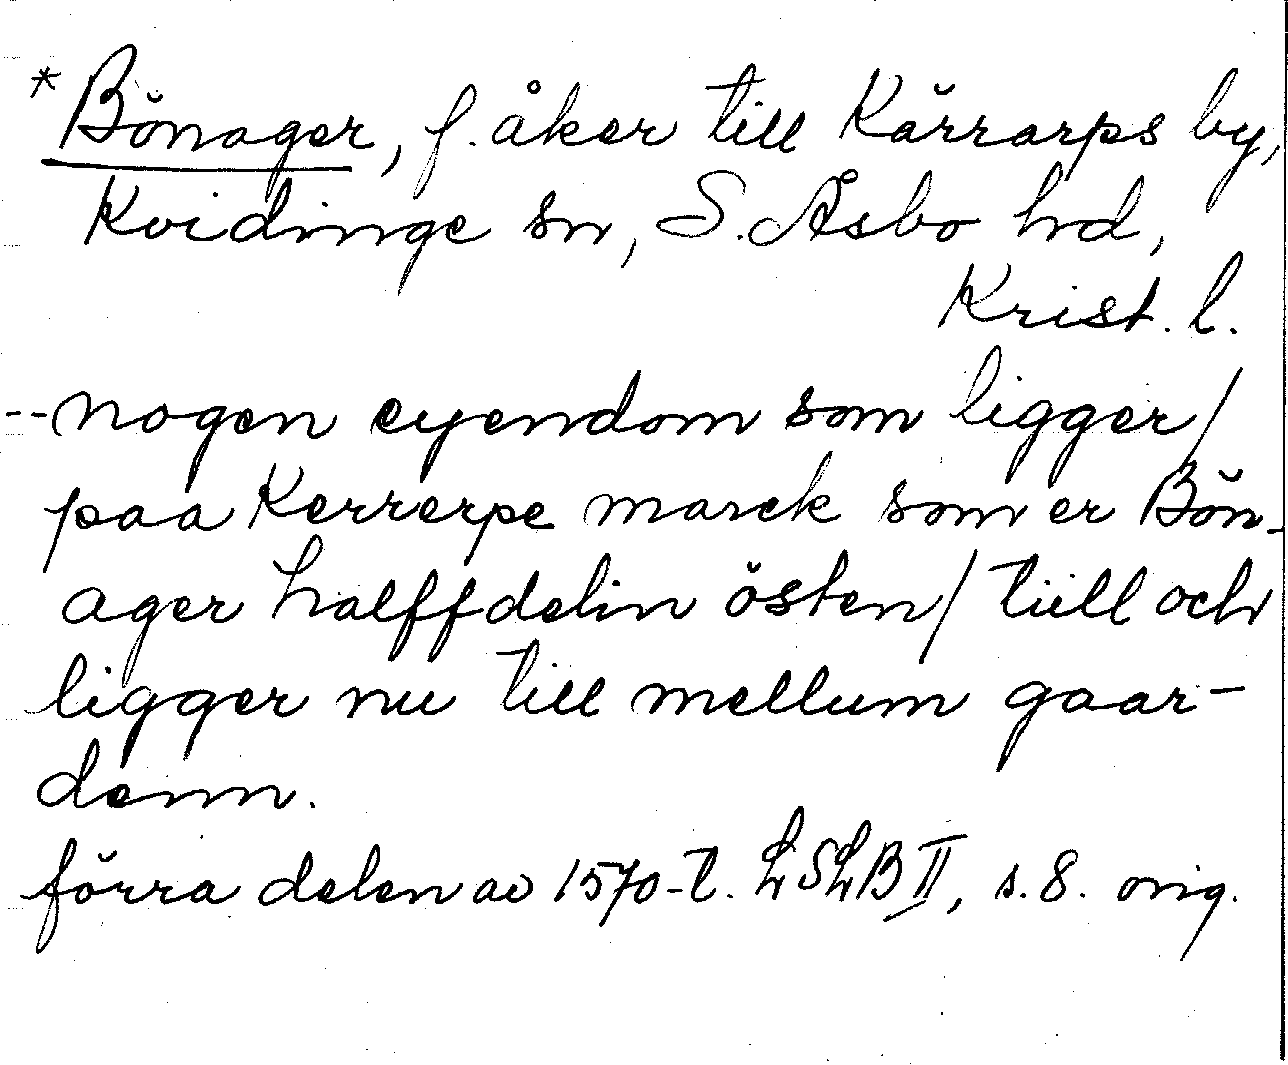 *Bönager, f. åker till Kärrarps by,
Kvidinge sn, S. Åsbo hd,
Krist. l.
--nogen eyendom som ligger/
paa Kerrerpe marck som er Bön-
ager halffdelin östen/ tiill och
ligger nu till mellum gaar-
denn.
förra delen av 1570-t. LSLB II, s. 8. orig.